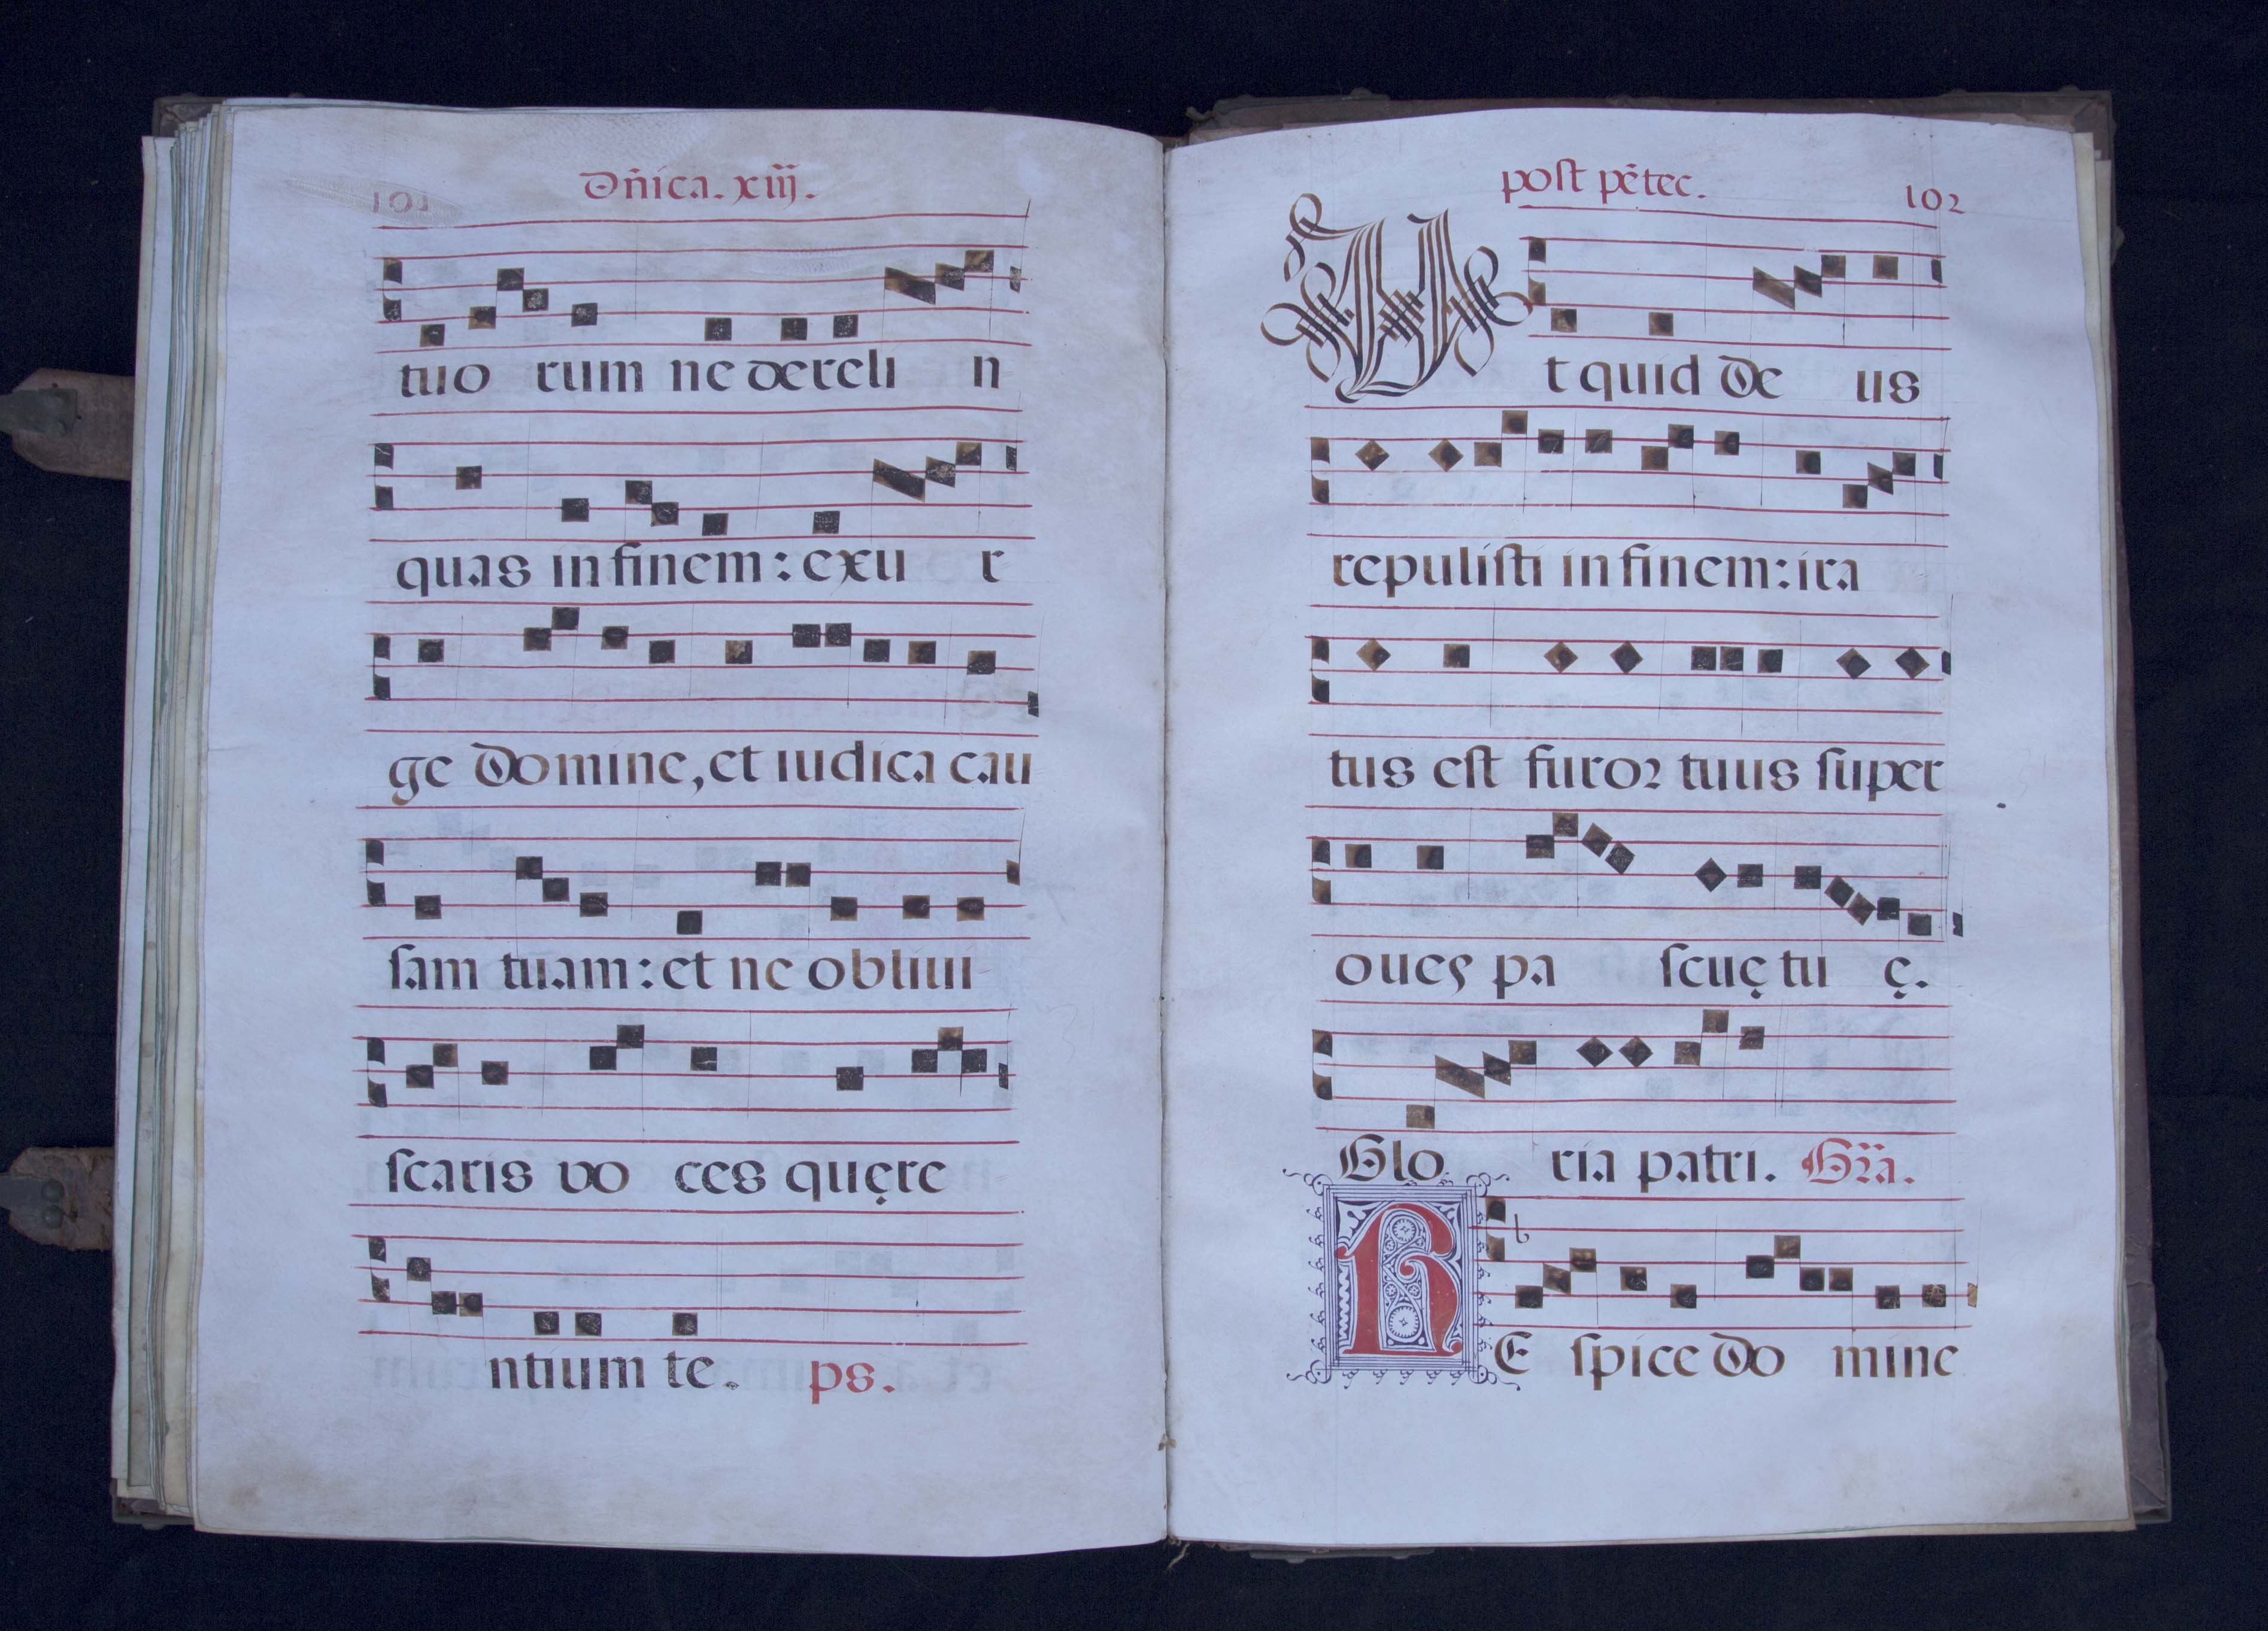 101
Dñica. xiij.
tuo rum ne dereli n
quas in finem: exu r
ge Domine, et iudica cau
sam tuam: et ne obliui
scaris vo ces quęre
ntium te. ps.
post pẽtec.
102
Ut quid De us
repulisti in finem: ira
tus est furor tuus super
oues pa scuę tu ę.
Glo ria patri. Gr̃a.
RE spice Do mine